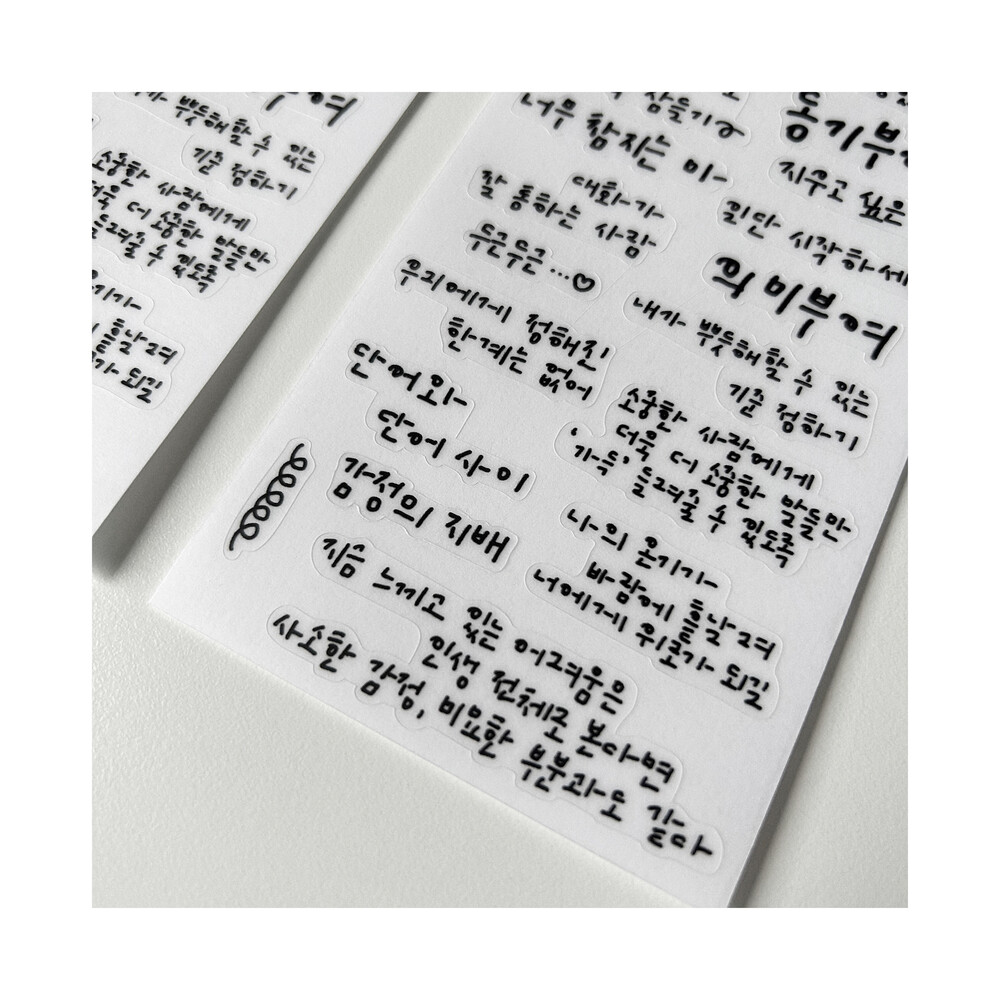 뿌듯해할 수 있는
기준 정하기
소중한 사람에게
더욱 더 소중한 말들만
들려줄 수 있도록
흩날려
되길
삼들기
너무 참지는 마
동기부여
지우고 싶은
대화가
잘 통하는 사람
두근두근…♡
일단 시작하세
의미부여
우리에게 정해진
한계는 없어
내가 뿌듯해할 수 있는
기준 정하기
단어와
단어 사이
소중한 사람에게
더욱 더 소중한 말들만
'가득' 들려줄 수 있도록
감정의 지배
나의 온기가
바람에 흩날려
너에게 위로가 되길
지금 느끼고 있는 어려움은
인생 전체로 본다면
사소한 감정, 미묘한 부분과도 같다